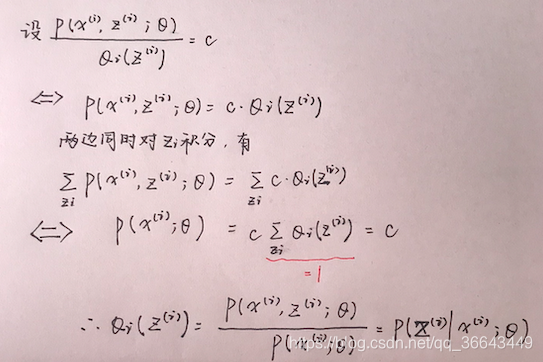 设 P(x⁽ⁱ⁾, z⁽ⁱ⁾; θ) / Qi(z⁽ⁱ⁾) = c
⇔ P(x⁽ⁱ⁾, z⁽ⁱ⁾; θ) = c · Qi(z⁽ⁱ⁾)
两边同时对 zi 积分, 有
∑zi P(x⁽ⁱ⁾, z⁽ⁱ⁾; θ) = ∑zi c · Qi(z⁽ⁱ⁾)
⇔ P(x⁽ⁱ⁾; θ) = c ∑zi Qi(z⁽ⁱ⁾) = c
= 1
∴ Qi(z⁽ⁱ⁾) = P(x⁽ⁱ⁾, z⁽ⁱ⁾; θ) / P(x⁽ⁱ⁾; θ) = P(z⁽ⁱ⁾ | x⁽ⁱ⁾; θ)
https://blog.csdn.net/qq_36643449